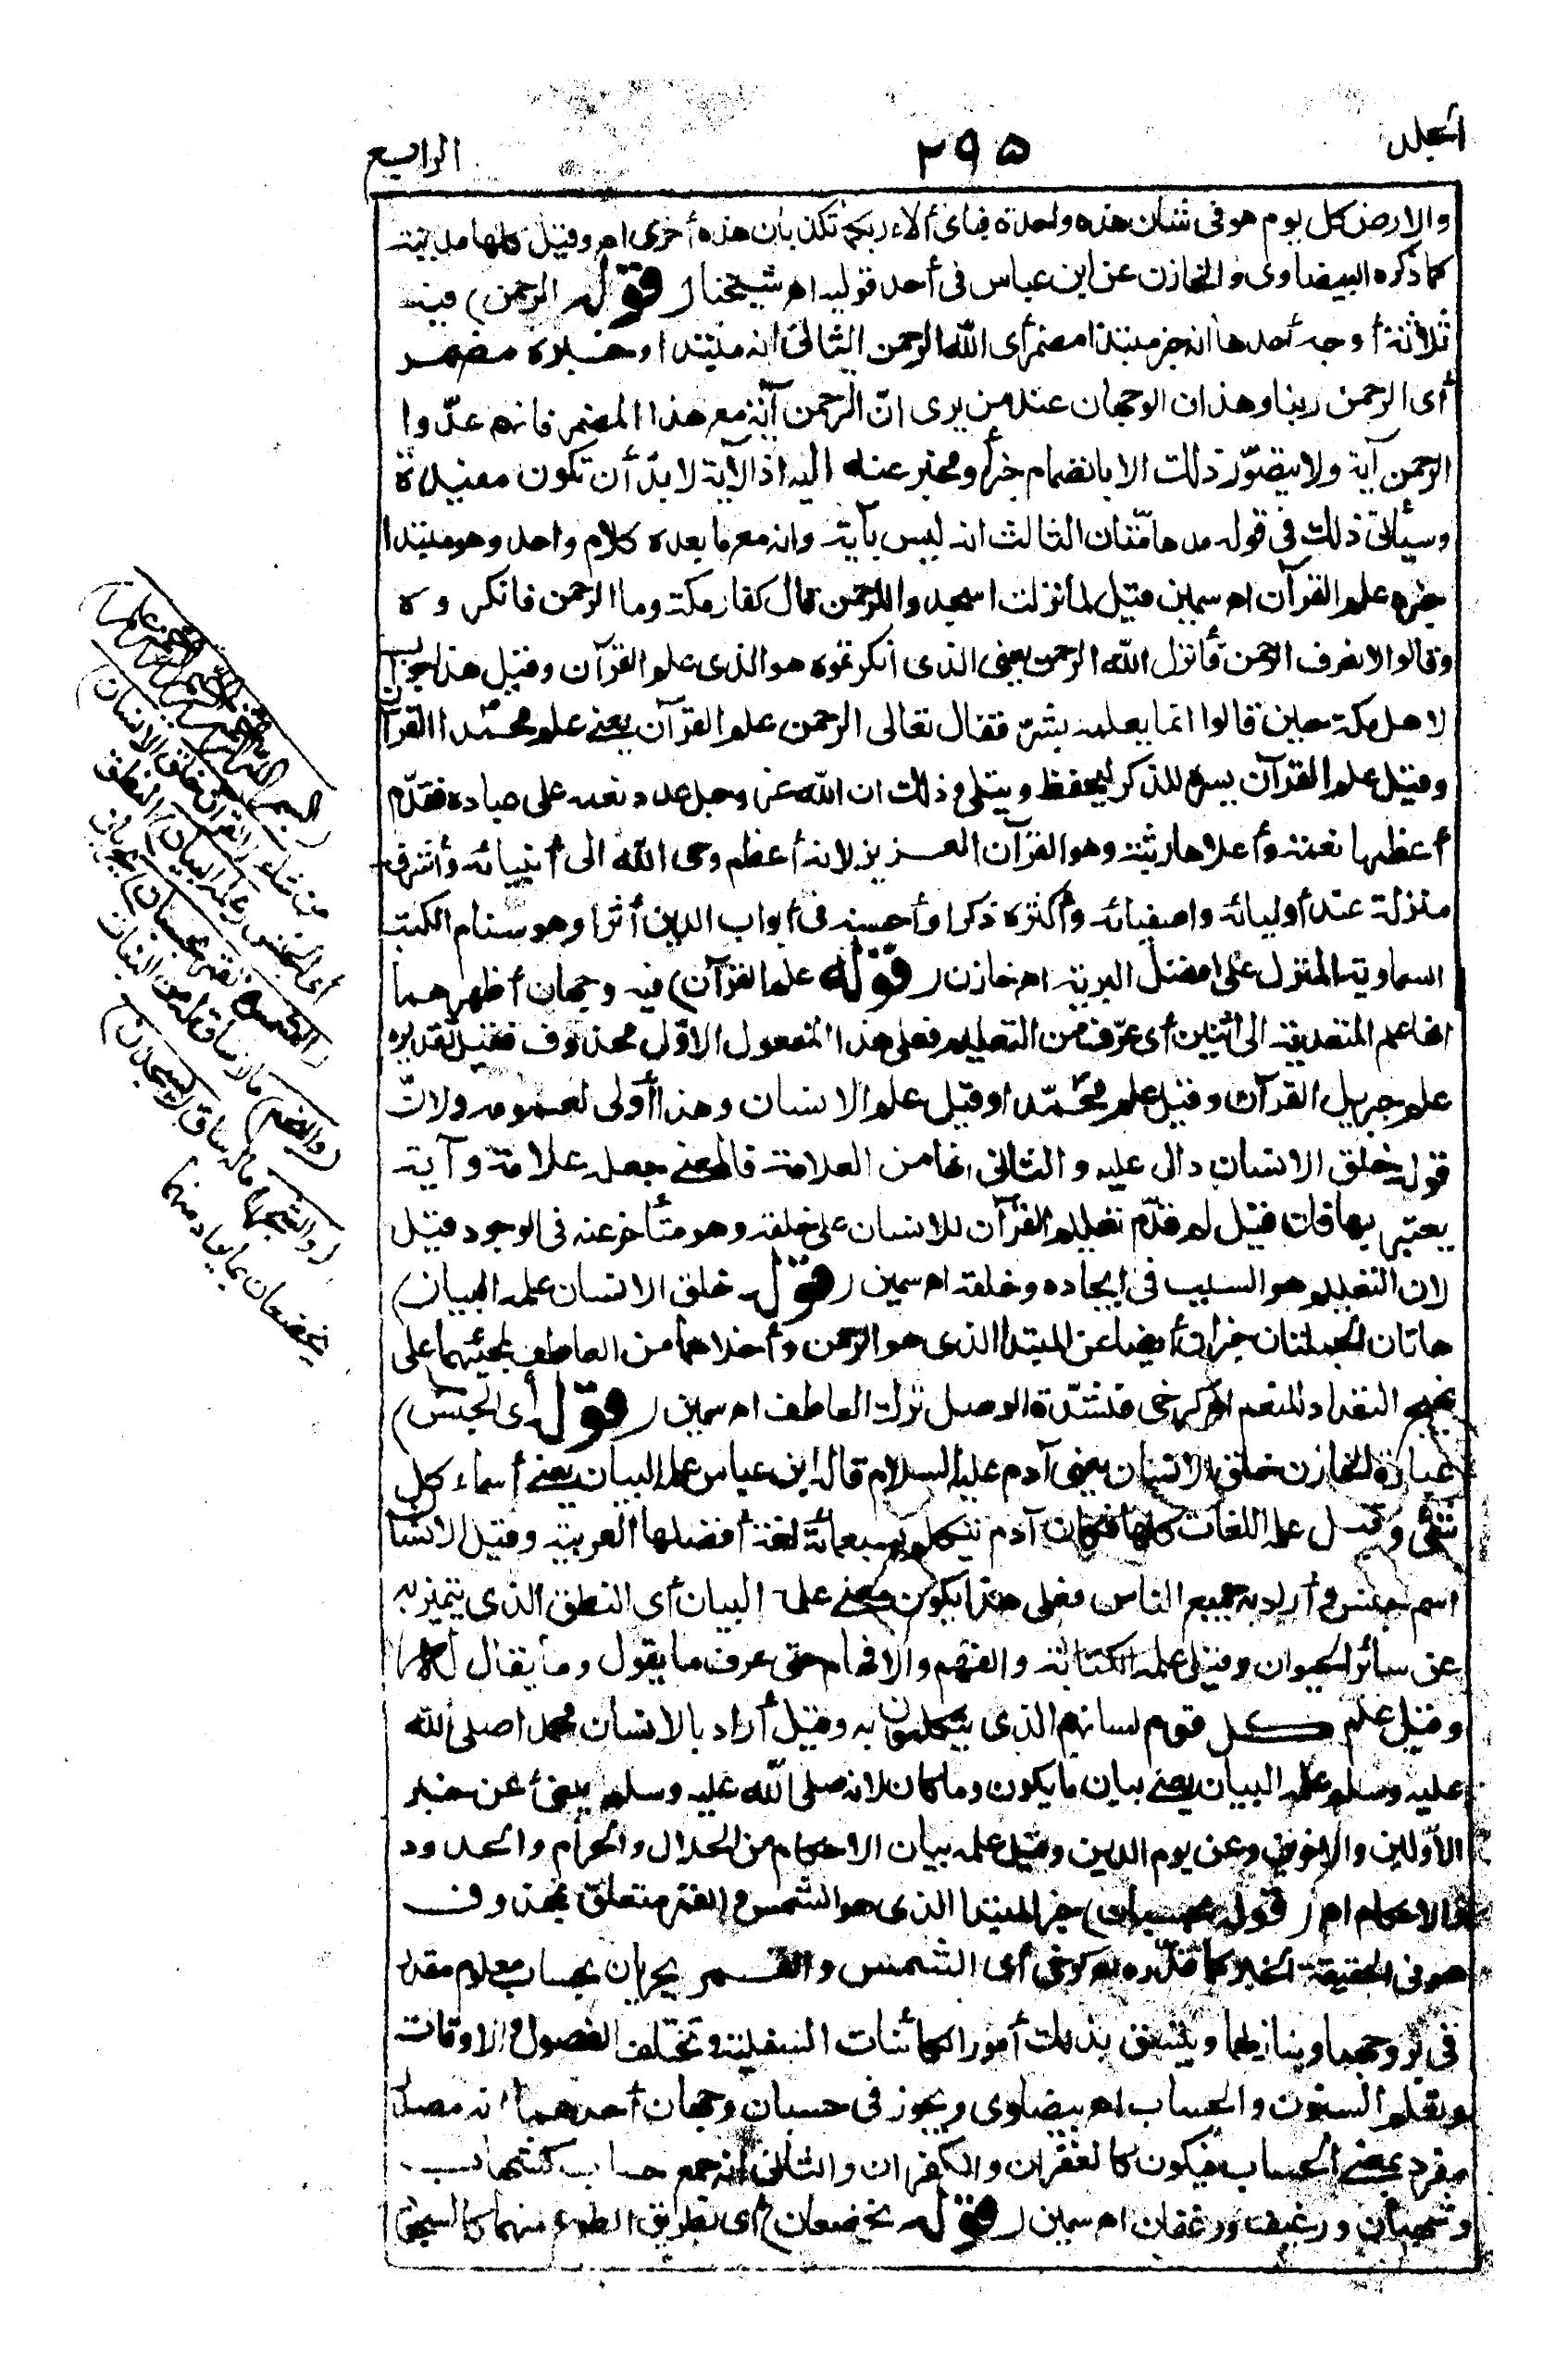 المجلد
٢٩٥
الرابع
والارض كل يوم هو في شأن هذه واحدة فبأى ألاء ربكما تكذبان هذه أخرى اه وقيل كلها مدنية
كما ذكره البيضاوى والخازن عن ابن عباس في أحد قوليه اه شيخنا (قوله الرحمن) فيه
ثلاثة أوجه أحدها انه خبر مبتدا مضمر أى الله الرحمن الثانى انه مبتدا وخبره مضمر
أى الرحمن ربنا وهذان الوجهان عند من يرى انّ الرحمن آية مع هذا المضمر فانهم عدّوا
الرحمن آية ولا يتصوّر ذلك الا بانضمام خبر أو مخبر عنه اليه اذ الآية لا بدّ أن تكون مفيدة
وسيأتى ذلك في قوله مدهامّتان الثالث انه ليس بآية وانه مع ما بعده كلام واحد وهو مبتدا
خبره علم القرآن اه سمين قيل لما نزلت اسجدوا للرحمن قال كفار مكة وما الرحمن فانكروه
وقالوا لا نعرف الرحمن فأنزل الله الرحمن يعنى الذى أنكرتموه هو الذى علم القرآن وقيل هذا جواب
لاهل مكة حين قالوا انما يعلمه بشر فقال تعالى الرحمن علم القرآن يعنى علم محمدا القرآن
وقيل علم القرآن يسره للذكر ليحفظ ويتلى وذلك ان الله عز وجل عدد نعمه على عباده فقدّم
أعظمها نعمة وأعلاها رتبة وهو القرآن العزيز لانه أعظم وحى الله الى أنبيائه وأشرفه
منزلة عند أوليائه واصفيائه وأكثره ذكرا وأحسنه في أبواب الدين أثرا وهو سنام الكتب
السماوية المنزل على افضل البرية اه خازن (قوله علم القرآن) فيه وجهان أظهرهما
انها علم المتعدية الى اثنين أى عرّف من التعليم فعلى هذا المفعول الاوّل محذوف فقيل تقديره
علم جبريل القرآن وقيل علم محمّدا وقيل علم الانسان وهذا أولى لعمومه ولانّ
قوله خلق الانسان دال عليه والثانى انها من العلامة فالمعنى جعله علامة وآية
يعتبر بها فان قيل لم قدّم تعليم القرآن للانسان على خلقه وهو متأخر عنه فى الوجود قيل
لان التعليم هو السبب فى ايجاده وخلقه اه سمين (قوله خلق الانسان علمه البيان)
هاتان الجملتان خبران أيضا عن المبتدا الذى هو الرحمن وأخلاهما من العاطف لمجيئهما على
نهج التعداد للنعم اه كرخى فشدّة الوصل ترك العاطف اه سمين (قوله أى الجنس)
عبارة الخازن خلق الانسان يعنى آدم عليه السلام قاله ابن عباس علمه البيان يعنى أسماء كل
شئ وقيل علمه اللغات كلها فكان آدم يتكلم بسبعمائة لغة أفضلها العربية وقيل الانسان
اسم جنس وأراد به جميع الناس فعلى هذا يكون معنى علمه البيان أى النطق الذى يتميز به
عن سائر الحيوان وقيل علمه الكتابة والفهم والافهام حتى عرف ما يقول وما يقال له
وقيل علم كل قوم لسانهم الذى يتكلمون به وقيل أراد بالانسان محمدا صلى الله
عليه وسلم علمه البيان يعنى بيان ما يكون وما كان لانه صلى الله عليه وسلم ينبئ عن خبر
الاوّلين والآخرين وعن يوم الدين وقيل علمه بيان الاحكام من الحلال والحرام والحدود
والاحكام اه (قوله بحسبان) خبر المبتدا الذى هو الشمس والقمر متعلق بمحذوف
هو فى الحقيقة الخبر كما قدّره اه كرخى أى الشمس والقمر يجريان بحساب معلوم مقدر
فى بروجهما ومنازلهما ويتسق بذلك أمور الكائنات السفلية وتختلف الفصول والاوقات
وتعلم السنون والحساب اه بيضاوى ويجوز فى حسبان وجهان أحدهما انه مصدر
مفرد بمعنى الحساب فيكون كالغفران والكفران والثانى انه جمع حساب كشهاب
وشهبان ورغيف ورغفان اه سمين (قوله يخضعان) أى بطريق الطوع منهما كالسجود
(بسم الله الرحمن الرحيم الرحمن علم)
من شاء (القرآن خلق الانسان)
أى الجنس (علمه البيان) النطق
(الشمس والقمر بحسبان) يجريان
(والنجم) مالا ساق له من النبات
(والشجر) ماله ساق (يسجدان)
يخضعان بما يراد منهما